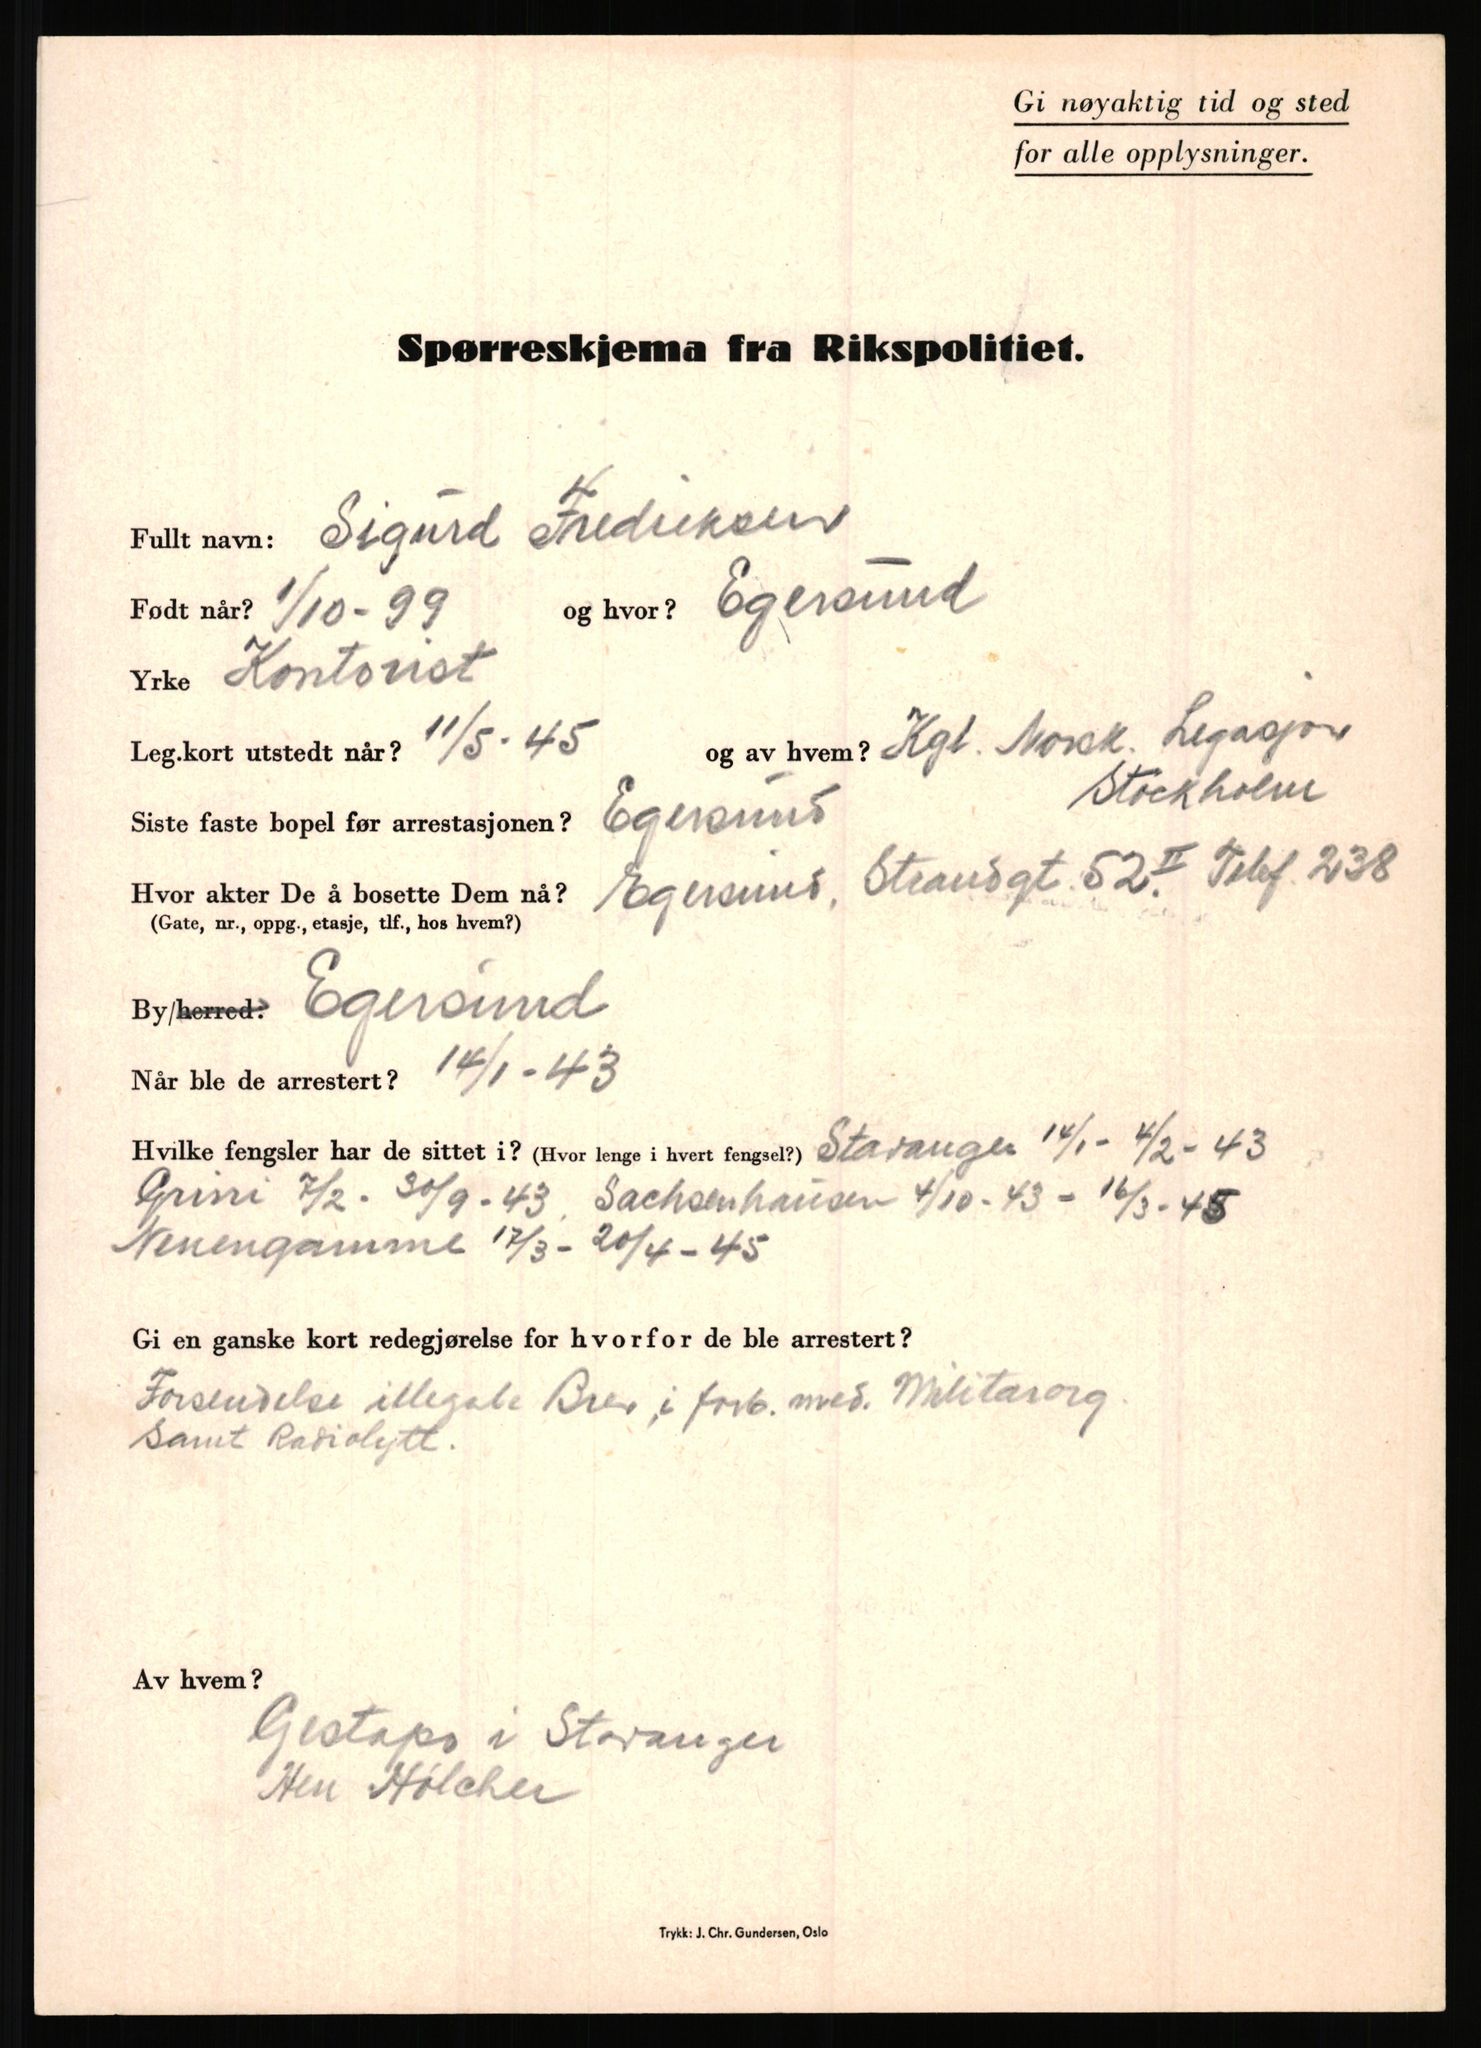 Gi nøyaktig tid og sted
for alle opplysninger.
Spørreskjema fra Rikspolitiet.
Fullt navn: Sigurd Fredriksen
Født når? 1/10-99 og hvor? Egersund
Yrke Kontorist
Leg.kort utstedt når? 11/5-45 og av hvem? Kgl. Norsk. Legasjon
Stockholm
Siste faste bopel før arrestasjonen? Egersund
Hvor akter De å bosette Dem nå? Egersund, Strandgt. 52 II. Telef. 238
(Gate, nr., oppg., etasje, tlf., hos hvem?)
By/herred? Egersund
Når ble de arrestert? 14/1-43
Hvilke fengsler har de sittet i? (Hvor lenge i hvert fengsel?) Stavanger 14/1 - 4/2-43
Grini 7/2 - 30/9-43, Sachsenhausen 4/10-43 - 16/3-45
Neuengamme 17/3 - 20/4-45
Gi en ganske kort redegjørelse for hvorfor de ble arrestert?
Forsendelse illegale Brev, i forb. med. Militærorg.
Samt Radiolytt.
Av hvem?
Gestapo i Stavanger
Herr Hölcher
Trykk: J. Chr. Gundersen, Oslo